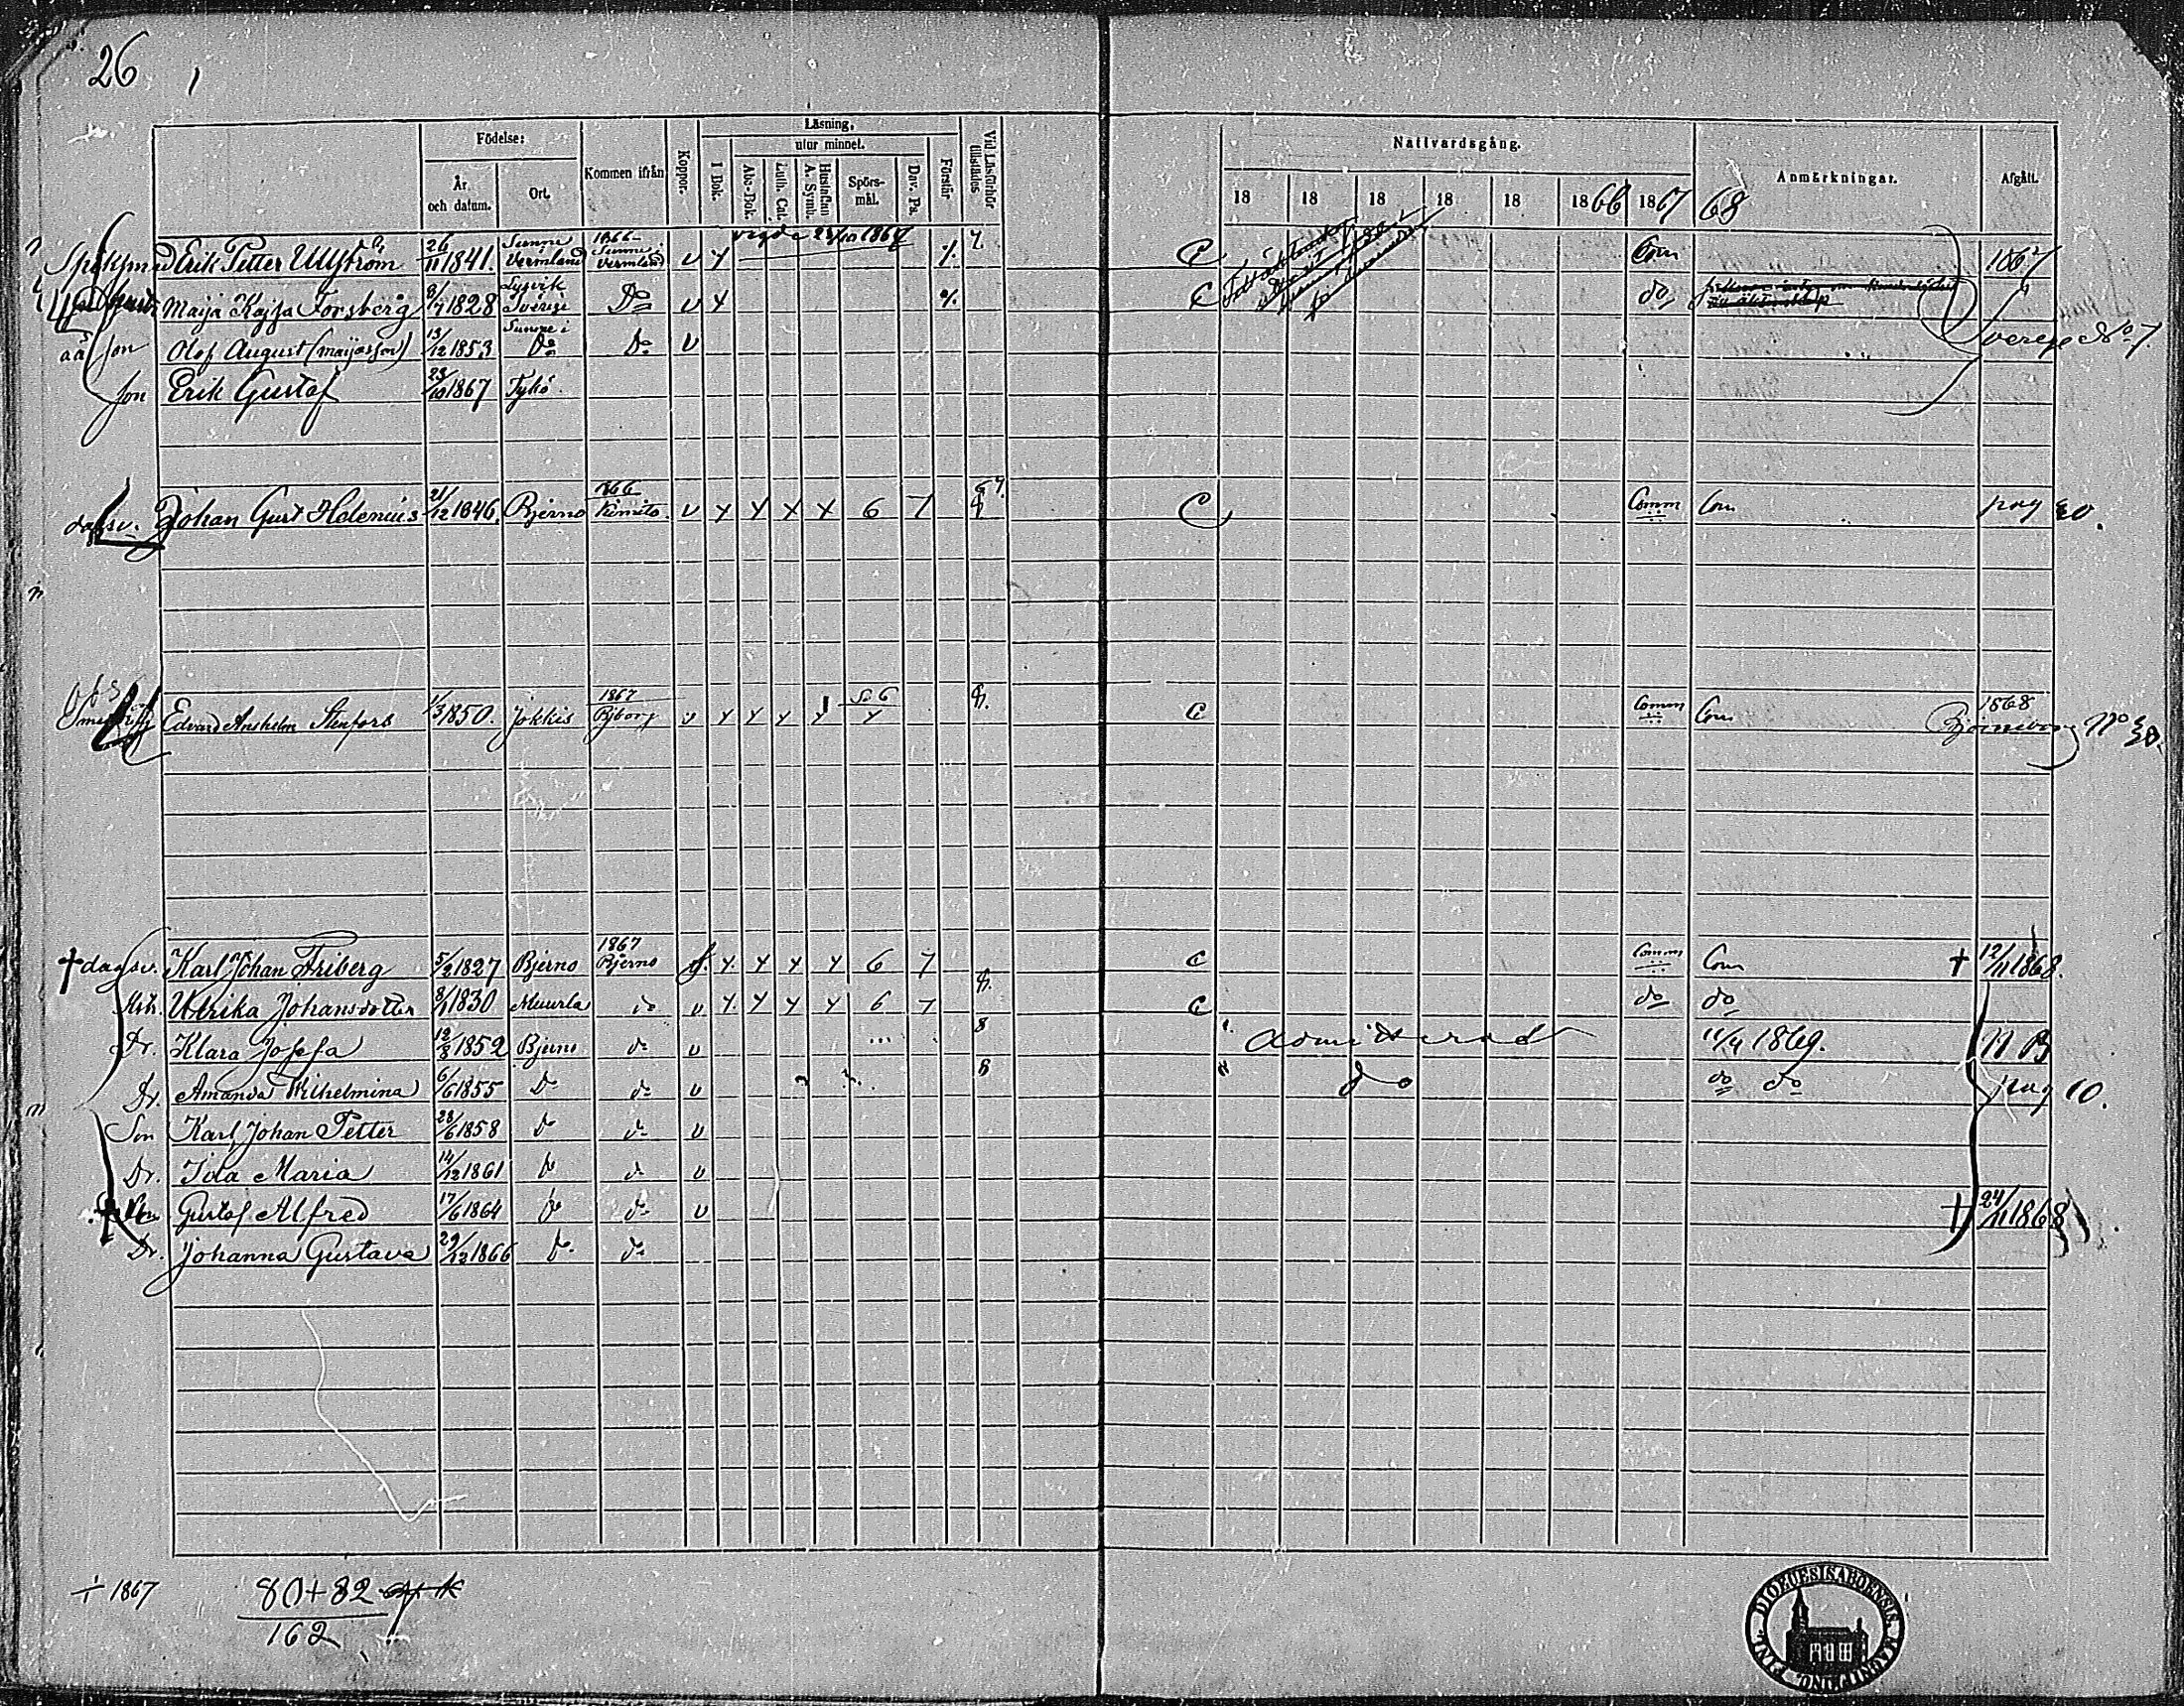 26
Födelse:
År och datum.
Ort.
Kommen ifrån
Koppor.
Läsning,
utur minnet.
I Bok.
Abs-Bok.
Luth. Cat.
Hustaflan A. Symb.
Spörs-mål.
Dav. Ps.
Förstår
Vid Läsförhör tillstädes
Nattvardsgång.
18 18 18 18 18 1866 1867 68
Anmärkningar.
Afgått.
Erik Petter Ullström 26/11 1841. Sunne Vermland 1866 Sunne Vermland v y vigde 1867 C Com 1867
Maija Kajsa Forsberg 1828 Lysvik Sverige Do v y C do
son Olof August (maijasson) 13/12 1853 Sunne i Do Do v Sverege No 7.
son Erik Gustaf 23/10 1867 Tykö.
dagsv. Johan Gust Helenius 21/12 1846. Bjerno 1866 Kimito. v y y y y 6 7 C Comm Com pag 20.
Edvard Anshelm Stenfors 1/3 1850. Jokkis 1867 Bjborg v y y y y S. 6 y C Comm Com 1868 Bjorneborg No 30.
† dagsv. Karl Johan Friberg 5/2 1827 Bjerno 1867 Bjerno y. y y y 6 7 C Comm Com † 12/11 1868.
Ulrika Johansdotter 8/1 1830 Muurla do v y. y y y 6 7 C do do
Dr. Klara Josefa 12/8 1852 Bjerno do v 8 admitterad 11/4 1869. N B
Dr. Amanda Wilhelmina 6/6 1855 Do do v 8 do do do pag 10.
Son Karl Johan Petter 28/6 1858 do do v
Dr. Ida Maria 14/12 1861 do do v
† Son Gustaf Alfred 17/6 1864 do do v † 24/11 1868
Dr. Johanna Gustava 29/12 1866 do do
1867
80+82
162